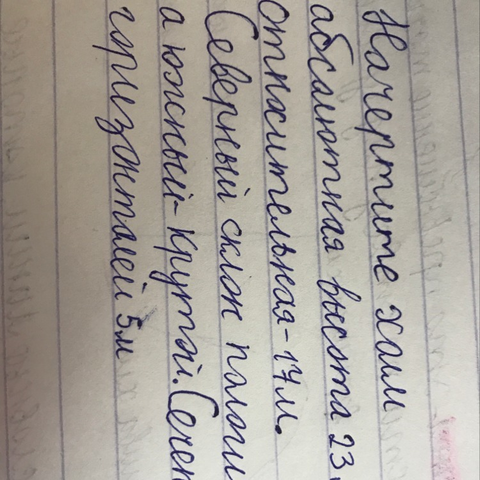 Начертите холм
абсолютная высота 23
относительная-17м.
Северный склон пологи
а южный-крутой. Сечен
горизонталей 5м